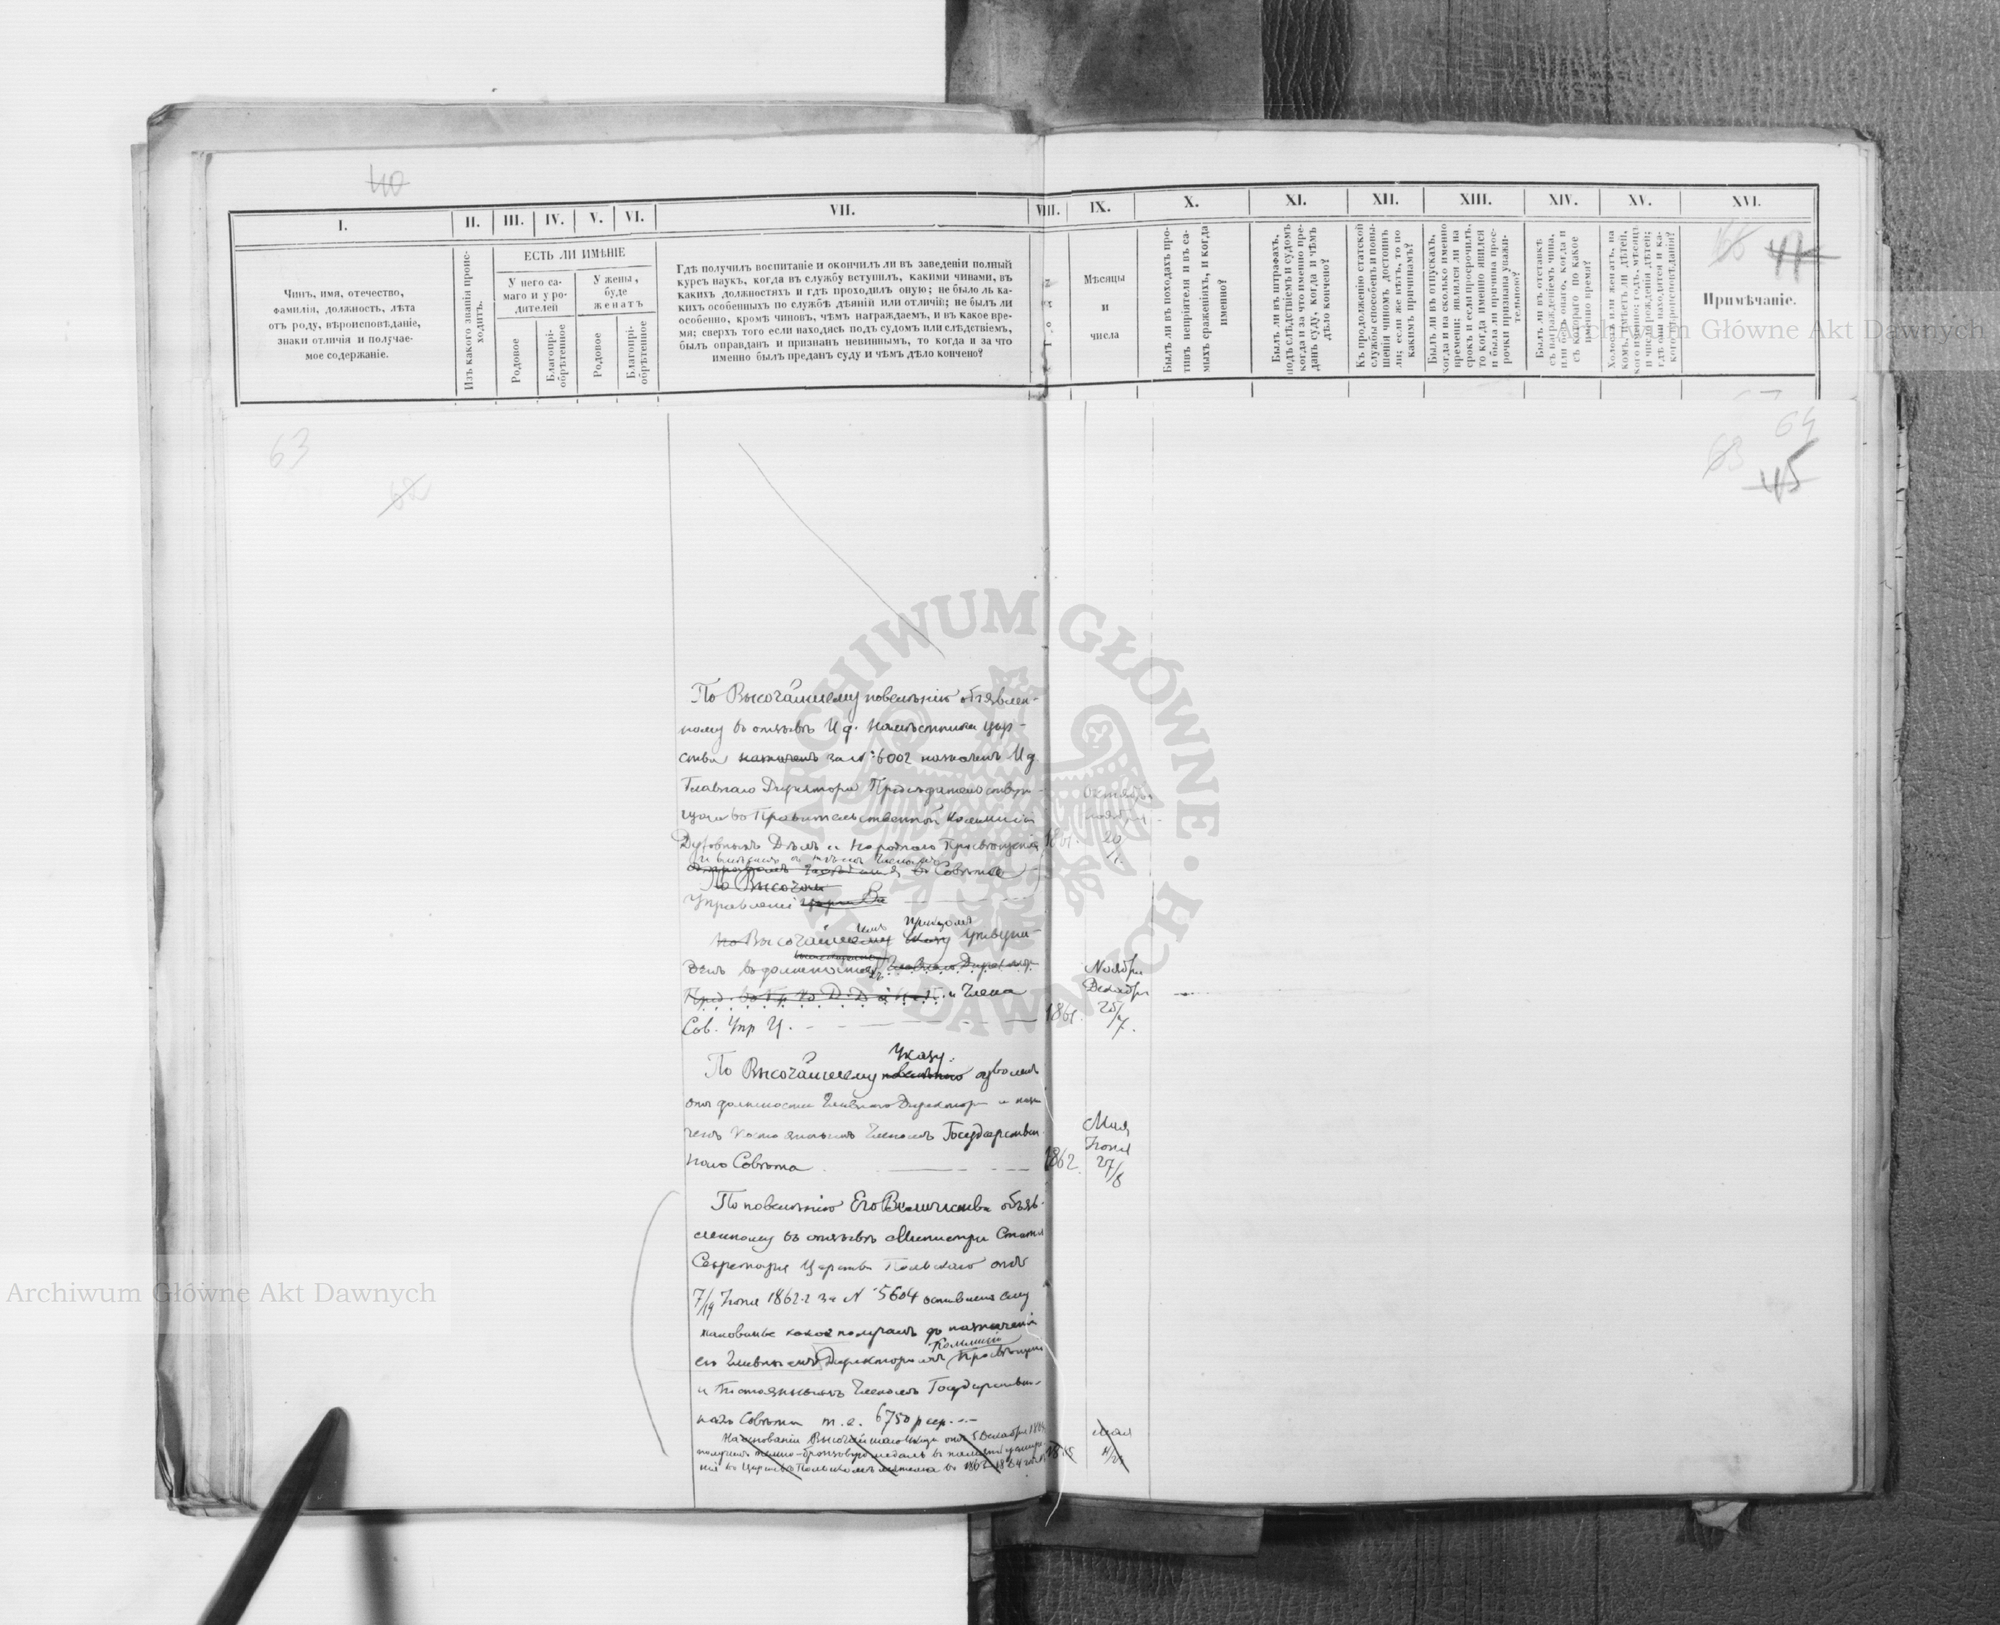 40
I. II. III. IV. V. VI. VII. VIII. IX. X. XI. XII. XIII. XIV. XV. XVI.
Чинъ, имя, отечество,
фамилія, должность, лѣта
отъ роду, вѣроисповѣданіе,
знаки отличія и получае-
мое содержаніе.
Изъ какого званія проис-
ходитъ.
ЕСТЬ ЛИ ИМѢНІЕ
У него са-
маго и у ро-
дителей
У жены,
буде
женатъ
Родовое
Благопрі-
обрѣтенное
Родовое
Благопрі-
обрѣтенное
Гдѣ получилъ воспитаніе и окончилъ ли въ заведеніи полный
курсъ наукъ, когда въ службу вступилъ, какими чинами, въ
какихъ должностяхъ и гдѣ проходилъ оную; не было ль ка-
кихъ особенныхъ по службѣ дѣяній или отличій; не былъ ли
особенно, кромѣ чиновъ, чѣмъ награждаемъ, и въ какое вре-
мя; сверхъ того если находясь подъ судомъ или слѣдствіемъ,
былъ оправданъ и признанъ невиннымъ, то когда и за что
именно былъ преданъ суду и чѣмъ дѣло кончено?
Мѣсяцы
и
числа
Былъ ли въ походахъ про-
тивъ непріятеля и въ са-
мыхъ сраженіяхъ, и когда
именно?
Былъ ли въ штрафахъ,
подъ слѣдствіемъ и судомъ
когда и за что именно пре-
данъ суду, когда и чѣмъ
дѣло кончено?
Къ продолженію статской
службы способенъ и повы-
шенія чиномъ достоинъ
ли; если же нѣтъ, то по
какимъ причинамъ?
Былъ ли въ отпускахъ,
когда и на сколько именно
времени; явился ли на
срокъ и если просрочилъ,
то когда именно явился
и была ли причина прос-
рочки признана уважи-
тельною?
Былъ ли въ отставкѣ
съ награжденіемъ чина,
или безъ онаго, когда и
съ котораго по какое
именно время?
Холостъ или женатъ, на
комъ, имѣетъ ли дѣтей,
кого именно; годъ, мѣсяцъ
и число рожденія дѣтей;
гдѣ они находятся и ка-
кого вѣроисповѣданія?
Примѣчаніе.
63
62
64
63
45
По Высочайшему повелѣнію объявлен-
ному въ отзывѣ И д. Намѣстника Цар-
ства назначенъ за N: 6002 назначенъ И д.
Главнаго Директора Предсѣдательствую-
щаго въ Правительственной Коммисіи
Духовныхъ Дѣлъ и Народнаго Просвѣщенія 1861.
Октября
Ноября
20
въ Совѣтѣ
По Высочай
Управленія
По Высочайшему Указу
въ должности Главнаго Директ
и Члена
Сов. Упр Ц. 1861.
Ноября
Декабря
25/7.
Указу
По Высочайшему повелѣнію уволенъ
отъ должности Главнаго Директора и наз
ченъ Постояннымъ Членомъ Государствен
наго Совѣта 1862.
Мая
Іюня
27/8
По повелѣнію Его Величества объяв-
ленному въ отзывѣ Министра Статсъ
Секретаря Царства Польскаго отъ
7/19 Іюня 1862 г за N 5604 оставлено ему
жалованье какое получалъ до назначенія
Коммисіи
его Главнымъ Директоромъ Просвѣщенія
и Постояннымъ Членомъ Государствен-
наго Совѣта т. е. 6750 р сер.
На основаніи Высочайшаго Указа отъ 5 Декабря
получилъ темно-бронзовую медаль въ память усмире-
нія въ Царствѣ Польскомъ мятежа въ 1863-1864
Мая
ARCHIWUM GŁÓWNE · AKT DAWNYCH ·
Archiwum Główne Akt Dawnych
Archiwum Główne Akt Dawnych